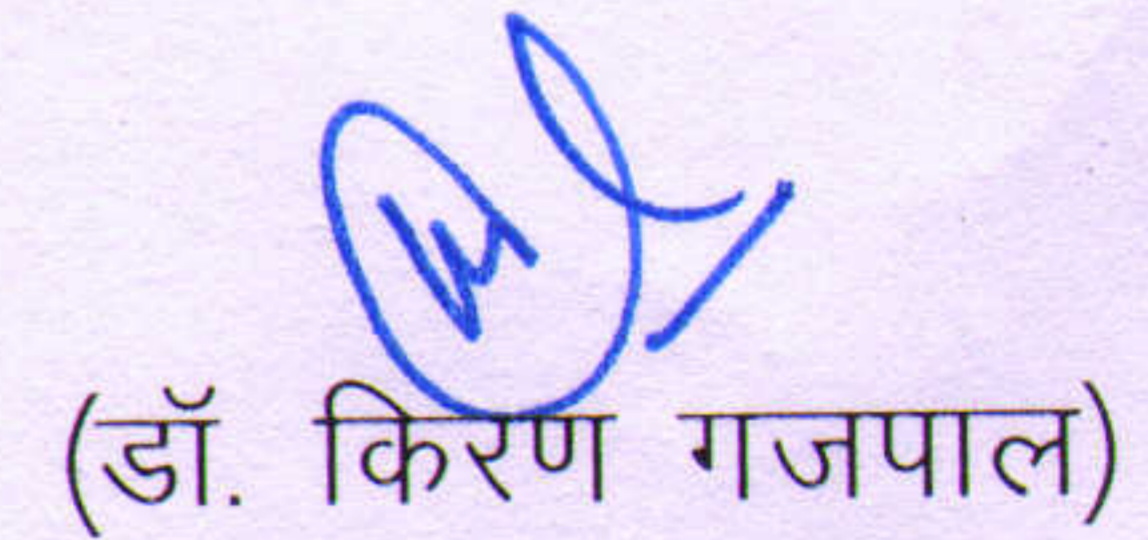 (डॉ. किरण गजपाल)